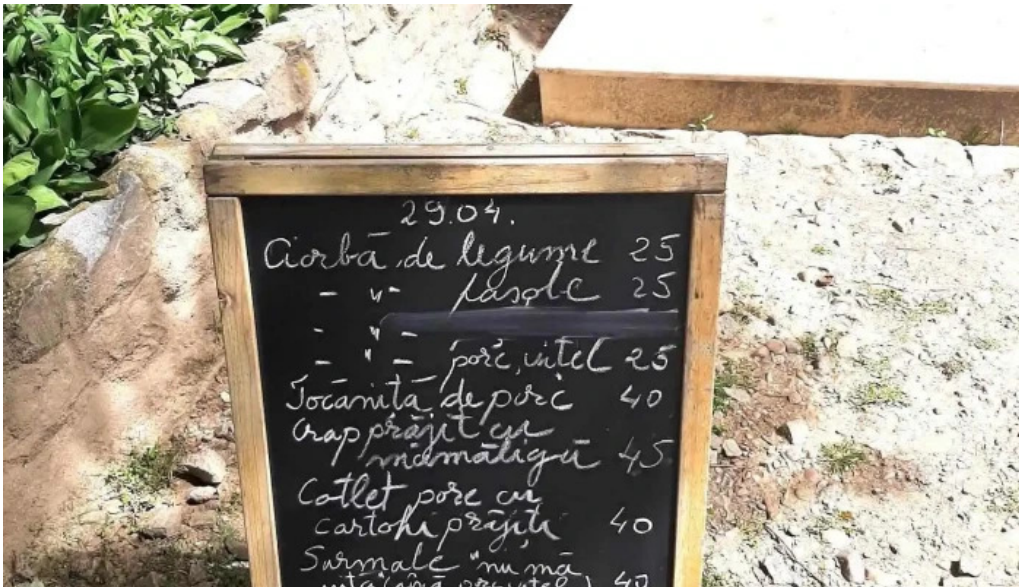 29.04.
Ciorbă de legume 25
- " - fasole 25
- " -
- " - porc, vițel 25
Tocăniță de porc 40
Crap prăjit cu
mămăligă 45
Cotlet porc cu
cartofi prăjiți 40
Sarmale "nu mă
uita